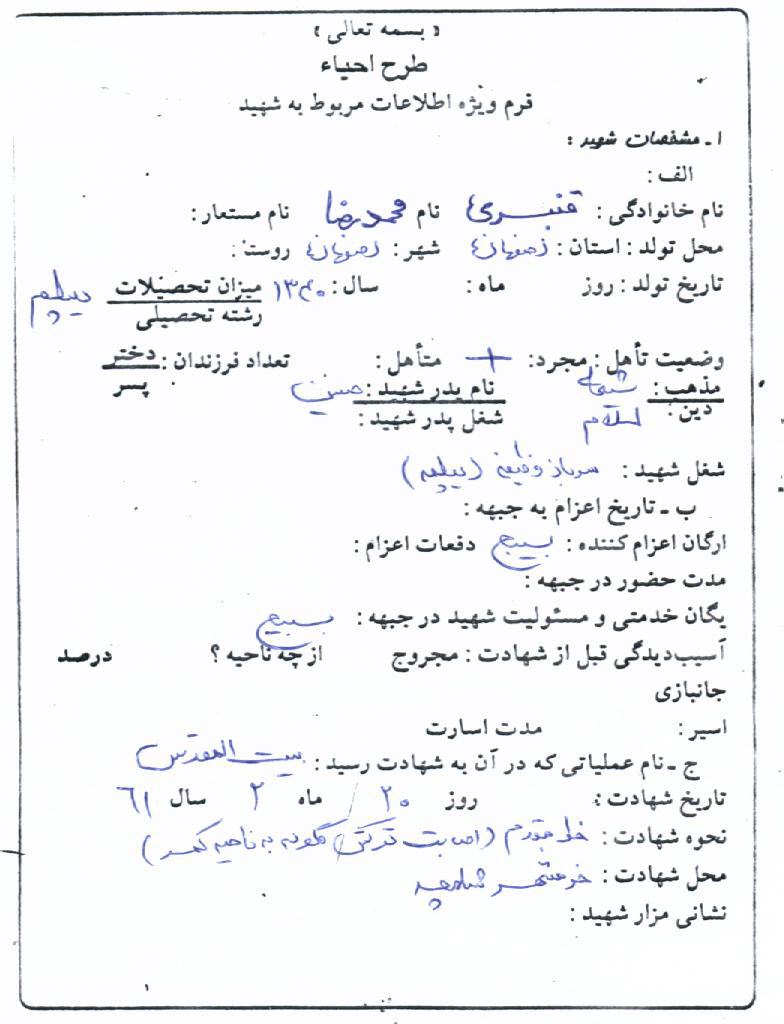 « بسمه تعالی »
طرح احیاء
فرم ویژه اطلاعات مربوط به شهید
۱ـ مشخصات شهید :
الف :
نام خانوادگی : قنبری نام محمدرضا نام مستعار :
محل تولد : استان : اصفهان شهر : اصفهان روستا :
تاریخ تولد : روز ماه : سال : ۱۳۴۰ میزان تحصیلات دیپلم
رشته تحصیلی
وضعیت تأهل : مجرد : + متأهل : تعداد فرزندان : دختر
پسر
مذهب : شیعه نام پدر شهید : حسین
دین : اسلام شغل پدر شهید :
شغل شهید : سرباز وظیفه (دیپلمه)
ب ـ تاریخ اعزام به جبهه :
ارگان اعزام کننده : بسیج دفعات اعزام :
مدت حضور در جبهه :
یگان خدمتی و مسئولیت شهید در جبهه : بسیج
آسیب‌دیدگی قبل از شهادت : مجروح از چه ناحیه ؟ درصد
جانبازی
اسیر : مدت اسارت
ج ـ نام عملیاتی که در آن به شهادت رسید : بیت المقدس
تاریخ شهادت : روز ۲۰ ماه ۲ سال ۶۱
نحوه شهادت : خط مقدم (اصابت ترکش گلوله به ناحیه کمر)
محل شهادت : خرمشهر شلمچه
نشانی مزار شهید :